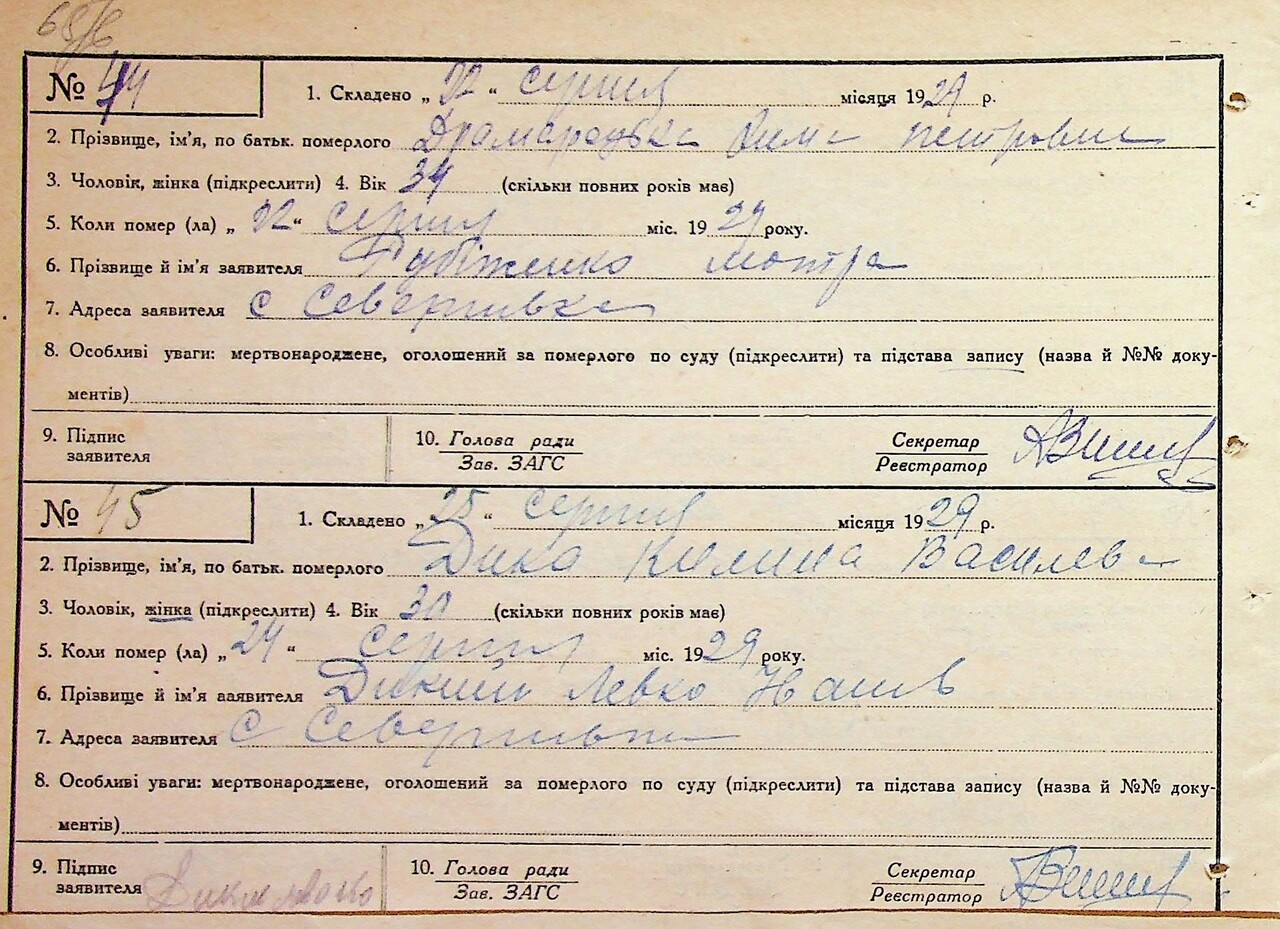 № 44
1. Складено „ 22 “ серпня місяця 1929 р.
2. Прізвище, ім'я, по батьк. померлого Петровна
3. Чоловік, жінка (підкреслити) 4. Вік 34 (скільки повних років має)
5. Коли помер (ла) „ 22 “ серпня міс. 1929 року.
6. Прізвище й ім'я заявителя Мотря
7. Адреса заявителя с Северинівка
8. Особливі уваги: мертвонароджене, оголошений за померлого по суду (підкреслити) та підстава запису (назва й №№ доку-
ментів)
9. Підпис
заявителя
10. Голова ради
Зав. ЗАГС
Секретар
Реєстратор
№ 45
1. Складено „ 25 “ серпня місяця 1929 р.
2. Прізвище, ім'я, по батьк. померлого Дика Килина Василева
3. Чоловік, жінка (підкреслити) 4. Вік 30 (скільки повних років має)
5. Коли помер (ла) „ 24 “ серпня міс. 1929 року.
6. Прізвище й ім'я заявителя Дикий Левко
7. Адреса заявителя с Северинівка
8. Особливі уваги: мертвонароджене, оголошений за померлого по суду (підкреслити) та підстава запису (назва й №№ доку-
ментів)
9. Підпис
заявителя
10. Голова ради
Зав. ЗАГС
Секретар
Реєстратор